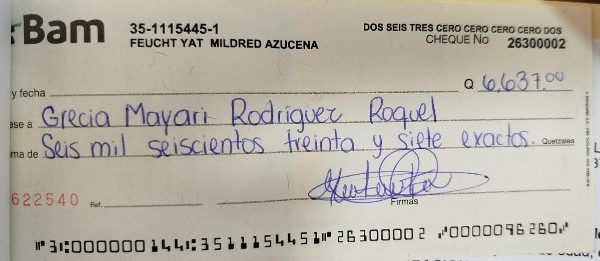 Bam
35-1115445-1
FEUCHT YAT MILDRED AZUCENA
DOS SEIS TRES CERO CERO CERO CERO DOS
CHEQUE No 26300002
y fecha
Q 6,637.00
ase a Grecia Mayari Rodriguez Roquel
ma de Seis mil seiscientos treinta y siete exactos. Quetzales
622540 Ref.
Firmas
31:000000 144:3511154451 26300002 0000096260